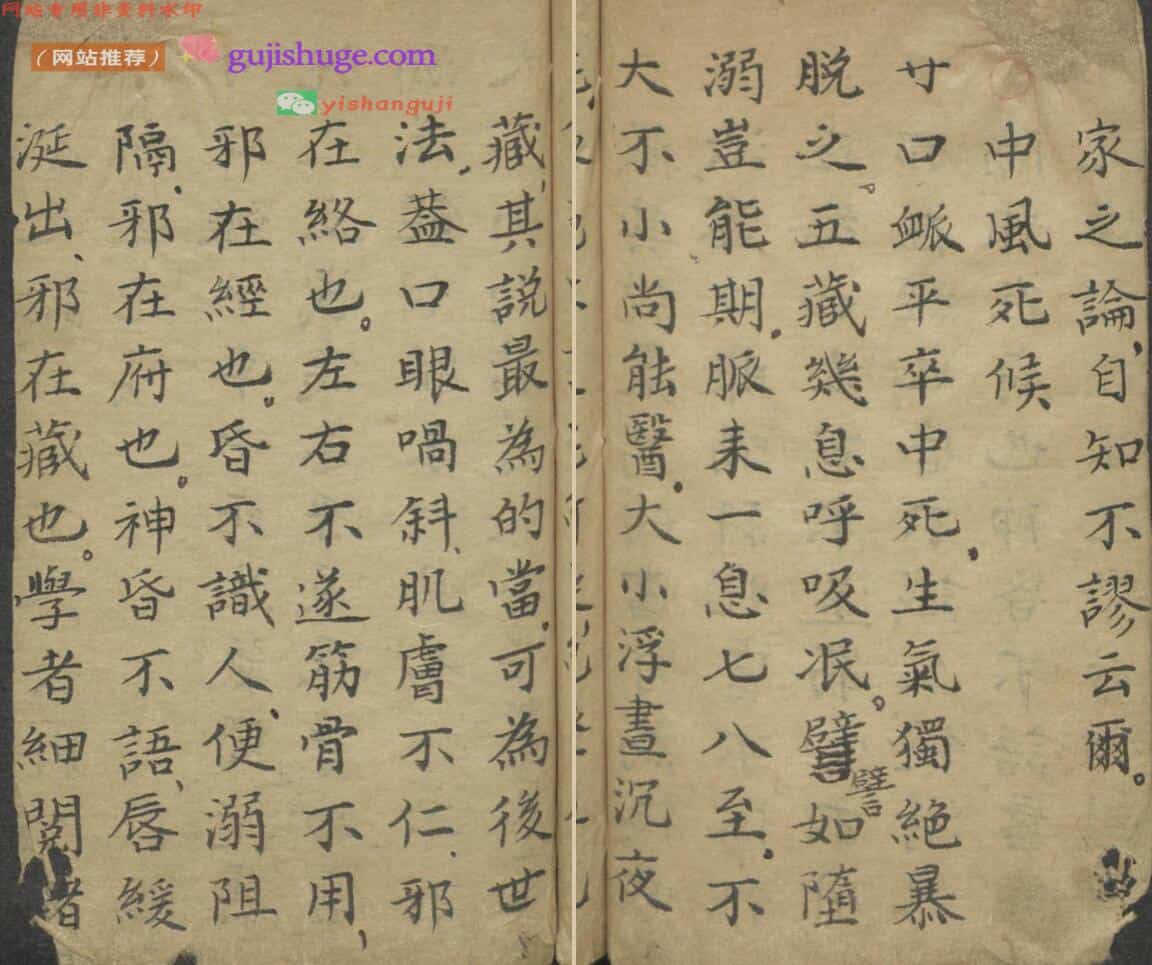 网站专用非资料水印
（网站推荐）
gujishuge.com
yishanguji
家之論、自知不謬云爾。
中風死候
寸口衇平卒中死、生氣獨絕暴
脱之。五藏幾息呼吸泯。譬如墮
譬
溺豈能期、脈来一息七八至、不
大不小尚能醫。大小浮晝沉夜
藏、其說最為的當、可為後世
法、蓋口眼喎斜、肌膚不仁、邪
在絡也。左右不遂筋骨不用、
邪在經也。昏不識人、便溺阻
隔、邪在府也。神昏不語、唇緩
涎出、邪在藏也。學者細閱者